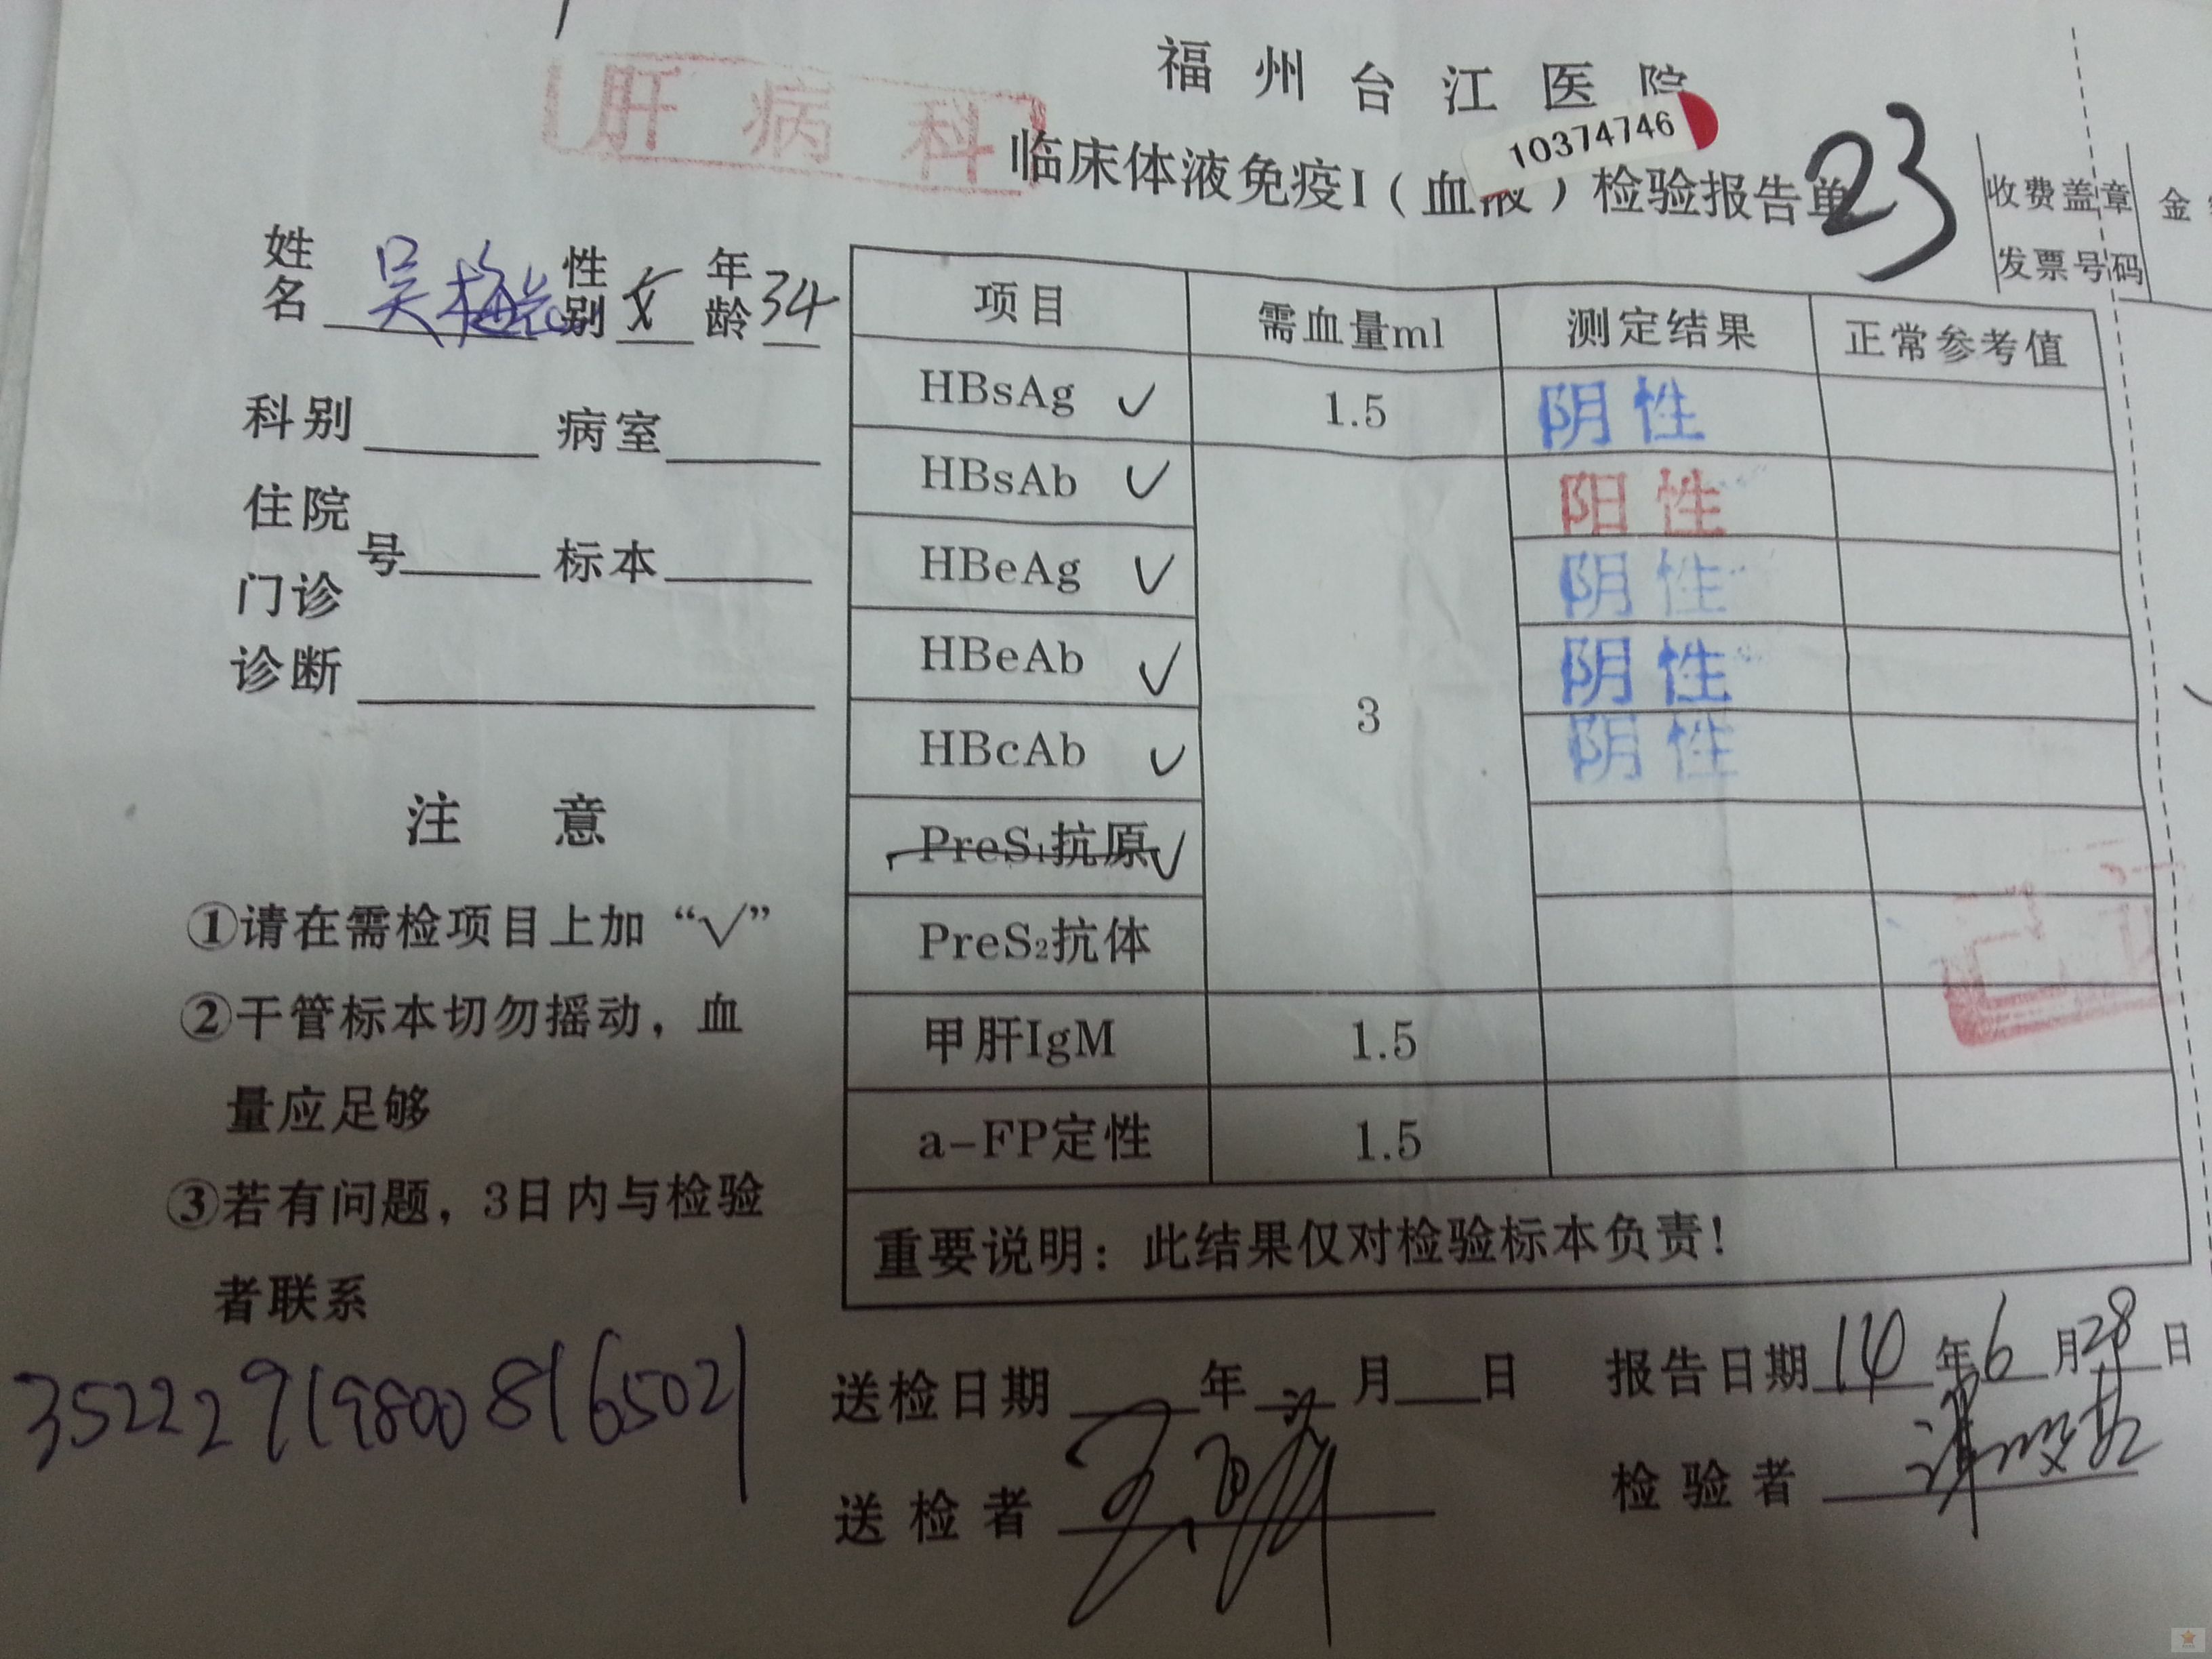 福州台江医院
肝病科
10374746
临床体液免疫I（血液）检验报告单 23
收费盖章 金
发票号码
姓名 吴梅 性别 女 年龄 34
科别 病室
住院
号 标本
门诊
诊断
项目 需血量ml 测定结果 正常参考值
HBsAg ✓ 1.5 阴性
HBsAb ✓ 阳性
HBeAg ✓ 阴性
HBeAb ✓ 3 阴性
HBcAb ✓ 阴性
PreS₁抗原 ✓
PreS₂抗体
甲肝IgM 1.5
a-FP定性 1.5
重要说明：此结果仅对检验标本负责！
注意
①请在需检项目上加“√”
②干管标本切勿摇动，血
量应足够
③若有问题，3日内与检验
者联系
352229198008165021
送检日期 年 月 日 报告日期 14 年 6 月 28 日
送检者 检验者